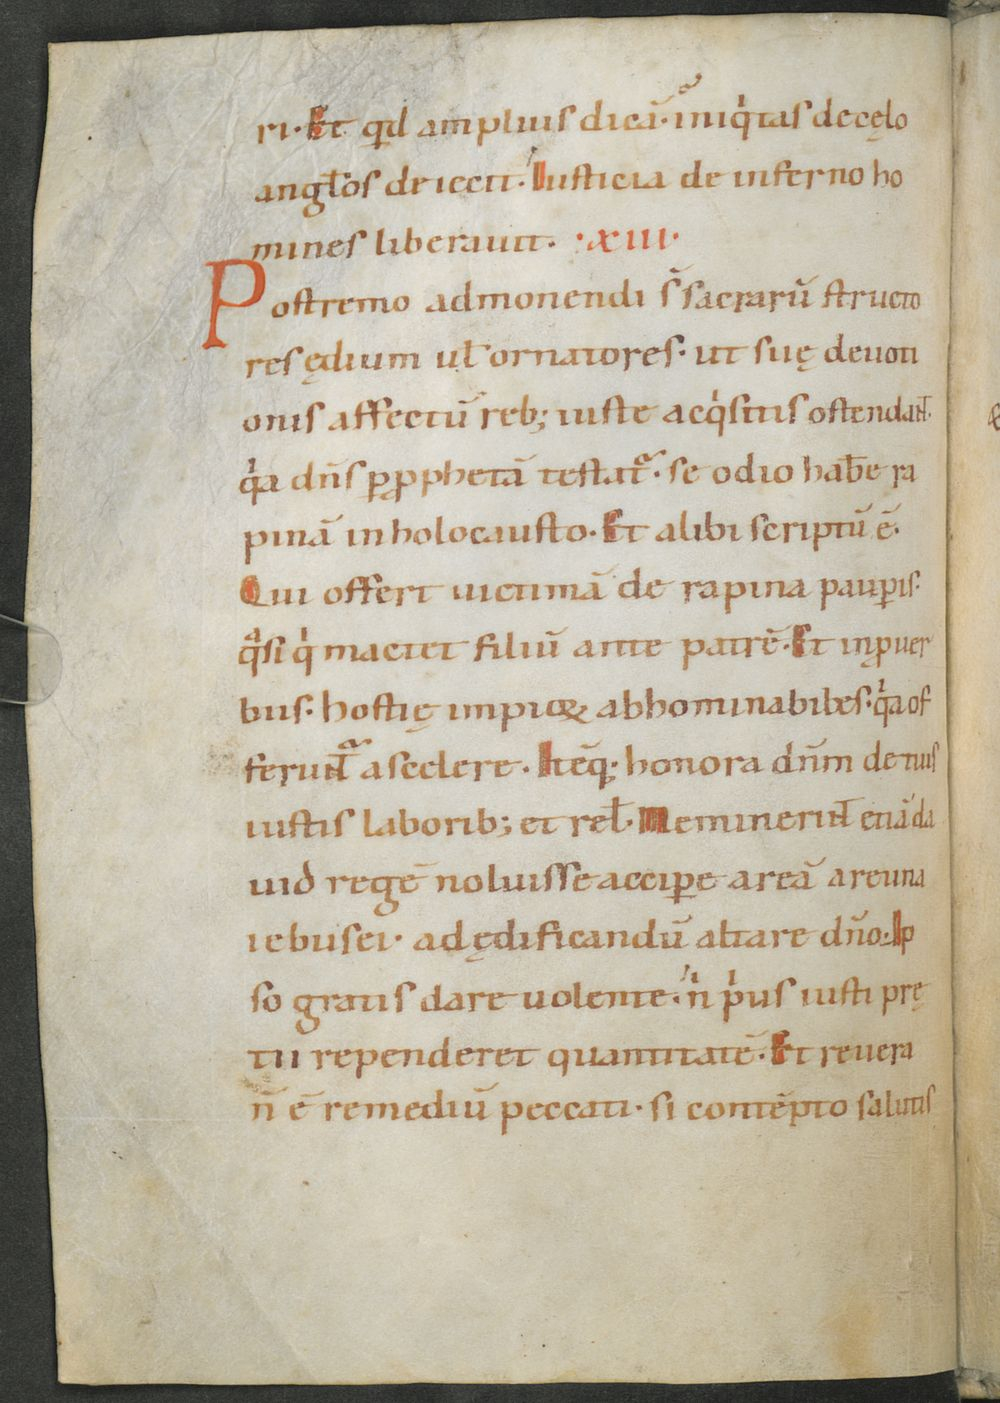 ri· Et qid amplius dicā· iniq̇tas de cęlo
angłos deiecit· Iusticia de inferno ho
mines liberauit. ·XIII·
Postremo admonendi s̄ sacrarū structo
res ędium uł ornatores· ut suę deuoti
onis affectū reb; iuste acq̇sitis ostendant·
q̇a dn̄s ꝑ ꝓphetā testat̄· se odio hab̄e ra
pinā in holocausto· Et alibi scriptū ē·
Qui offert uictimā de rapina pauꝑis·
qͣsi q̇ mactet filiū ante patrē· Et in ꝓuer
bus· hostię impioꝝ abhominabiles· q̇a of
ferunt̄ a scelere· Itēq; honora dn̄m de tuis
iustis laborib; et rel̄· Meminerint etiā da
uid regē noluisse acciꝑe areā areuna
iebusei· ad ędificandū altare dn̄o· Ip
so gratis dare uolente· n̄ pius iusti prę
tii rependeret quantitatē· Et reuera
n̄ ē remediū peccati· si contēpto salutis